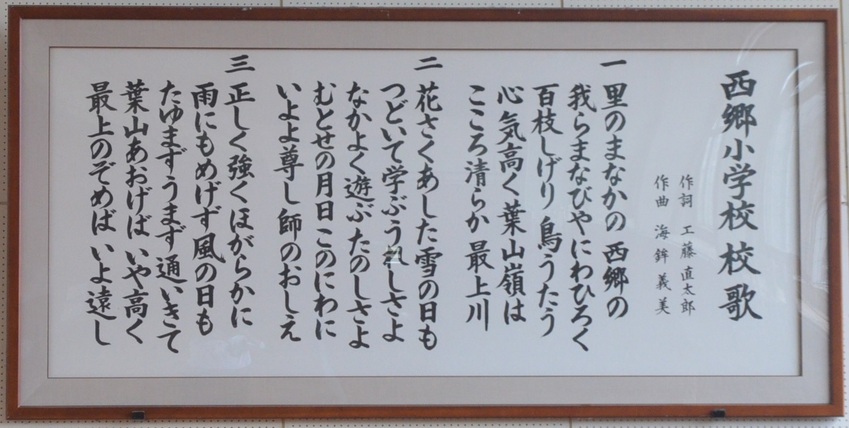 西郷小学校校歌
作詞 工藤直太郎
作曲 海鉾義美
一 里のまなかの 西郷の
我らまなびやにわひろく
百枝しげり 鳥うたう
心気高く 葉山嶺は
こころ清らか 最上川
二 花さくあした雪の日も
つどいて学ぶうれしさよ
なかよく遊ぶ たのしさよ
むとせの月日 このにわに
いよよ尊し 師のおしえ
三 正しく強く ほがらかに
雨にもめげず 風の日も
たゆまずうまず 通いきて
葉山あおげば いや高く
最上のぞめば いよ遠し